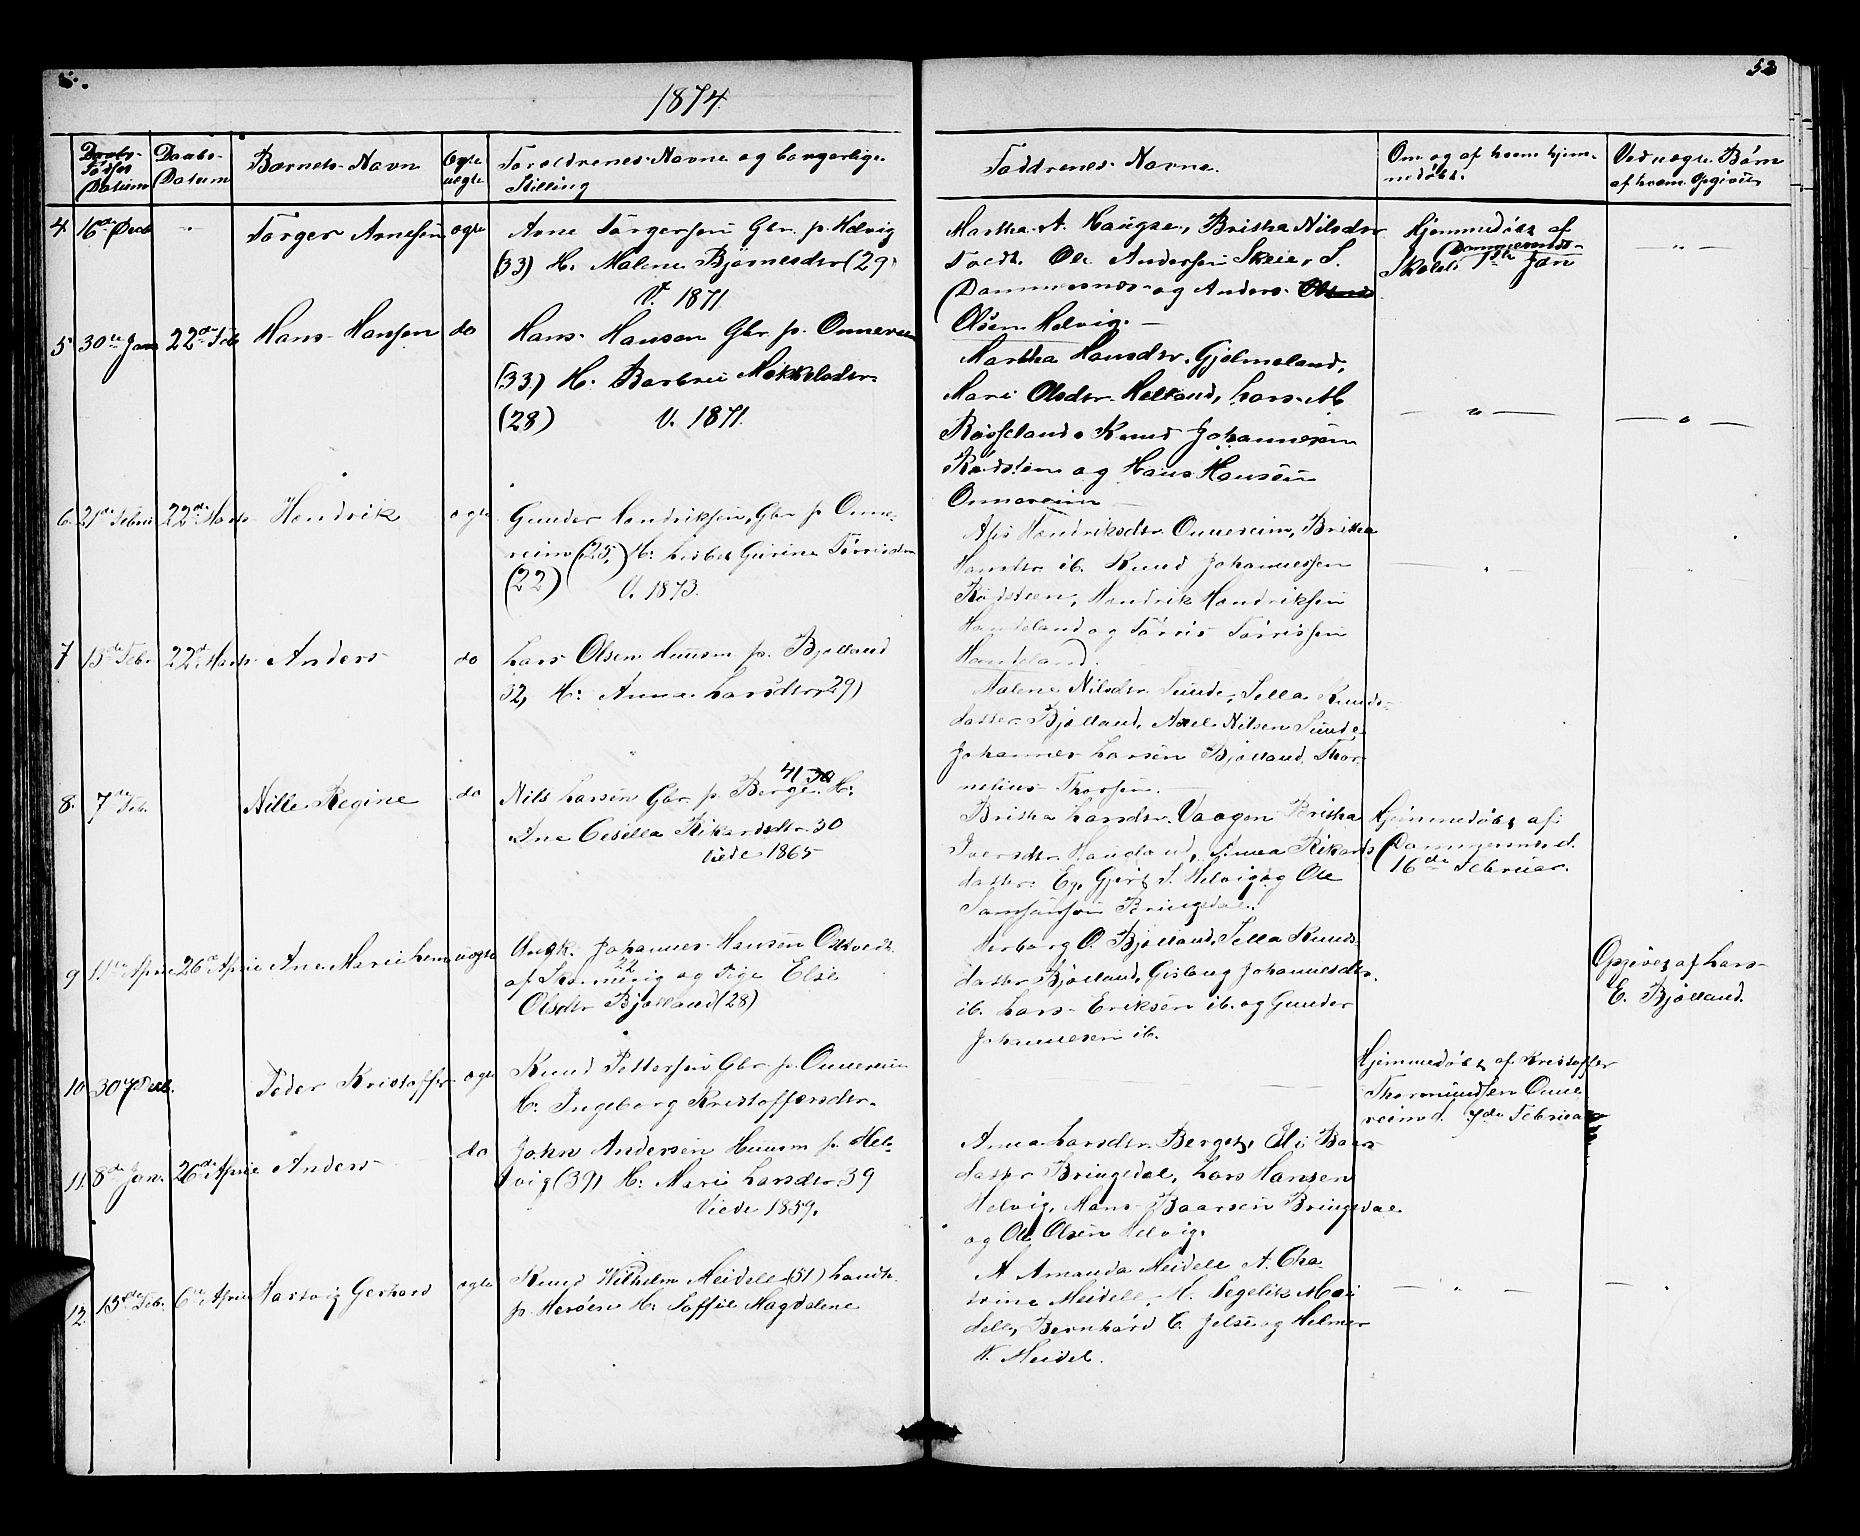 52
1874
Daabs-
Fødsel
Datum
Daabs-
Datum
Barnets Navn
Ægte
uægte
Forældrenes Navne og borgerlige
Stilling
Faddrenes Navne.
Om og af hvem hjem-
medøbt.
Ved uægte Børn
af hvem Opgiven
4 16de Decb Torger Arnesen ægte
Arne Torgersen Gbr. p. Helvig
(33) H: Malene Bjørnesdtr (29)
V. 1871
Martha A. Haugse, Britha Nilsdtr
Tvedt. Ole Andersen Skeie, S.
Dommersnes og Anders
Olsen Helvig. —
Hjemmedøbt af
Dommersnes
1ste Jan
5 30te Jan 22de Feb Hans Hansen do
Hans Hansen Gbr p. Onnereim
(33) H: Barbrei Mokkelsdtr.
(28) V. 1871.
Martha Hansdtr. Gjelmeland,
Mari Olsdtr Helland, Lars M
Røsseland, Knud Johannesen
Rødsten og Hans Hansen
Onnereim —
6 21de Febru 22de Marts Hendrik ægte
Gunder Hendriksen, Gbr p. Onne-
reim (25,) H: Lisbet Gurine Tørrisdtr
(22) V. 1873.
Hendriksdtr. Onnereim, Britha
Hansdtr ib. Knud Johannessen
Rødsteen, Hendrik Hendriksen
Handeland og Tørris Tørrissen
Handeland.
7 13de Febr. 22de Marts Anders do
Lars Olsen Huusm p. Bjelland
32, H: Anna Larsdtr 29)
Malene Nilsdtr. Sunde, Sella Knuds-
datter Bjelland, Axel Nilsen Sunde
Johannes Larsen Bjelland, Thor-
nelius Thorsen.
8. 7de Feb. Nille Regine do
41
Nils Larsen Gbr p. Berge. H:
Ane Cesilla Rikardsdtr. 30
Viede 1865
Britha Larsdtr. Vaagen Britha
Iversdtr. Haugland, Anna Rikards
datter Eg. Gjert S. Helvig og Ole
Samsonsen Bringedal.
Hjemmedøbt af
16de Februar.
9 11te April 26de April Ane Mari uægte
Ungk. Johannes Hansen
22
af og Pige Else
Olsdtr Bjelland (28)
Herborg O. Bjelland, Sella Knuds-
datter Bjelland, Gislaug Johannesdtr.
ib. Lars Eriksen ib. og Gunder
Johannesen ib.
Opgivet af Lars
E. Bjelland.
10 30 Peder Kristoffer ægte
Knud Pettersen Gbr p. Onnereim
H: Ingeborg Kristoffersdtr.
Hjemmedøbt af Kristoffer
Thormundsen Onne
reim d. 7de Februar
11. 8de Jan. 26de April Anders do
John Andersen Huusm p. Hel-
vig (39) H: Mari Larsdtr. 39
Viede 1859.
Anna Larsdtr. Berge, Eli Baars
datter Bringedal, Lars Hansen
Helvig, Hans Baarsen Bringedal
og Ole Olsen Helvig.
12. 15de Feb. 6te April Hartvig Gerhard ægte
Knud Wilhelm Meidell (51) Landh.
p. Herøen H: Soffie Magdalene
M Amanda Meidell A. Cha-
trine Meidell, H. Segelik Mei
dell, Bernhard C. Jelse og Helmer
W. Meidel.